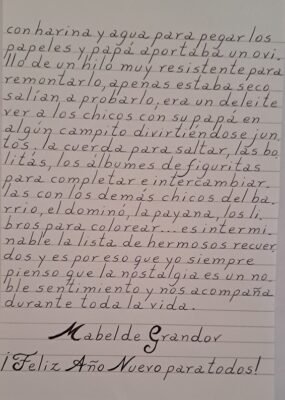 con harina y agua para pegar los
papeles y papá aportaba un ovi-
llo de un hilo muy resistente para
remontarlo, apenas estaba seco
salían a probarlo, era un deleite
ver a los chicos con su papá en
algún campito divirtiéndose jun-
tos; la cuerda para saltar, las bo-
litas, los álbumes de figuritas
para completar e intercambiar-
las con los demás chicos del ba-
rrio, el dominó, la payana, los li-
bros para colorear... es intermi-
nable la lista de hermosos recuer-
dos y es por eso que yo siempre
pienso que la nostalgia es un no-
ble sentimiento y nos acompaña
durante toda la vida.
Mabel de Grandov
¡Feliz Año Nuevo para todos!